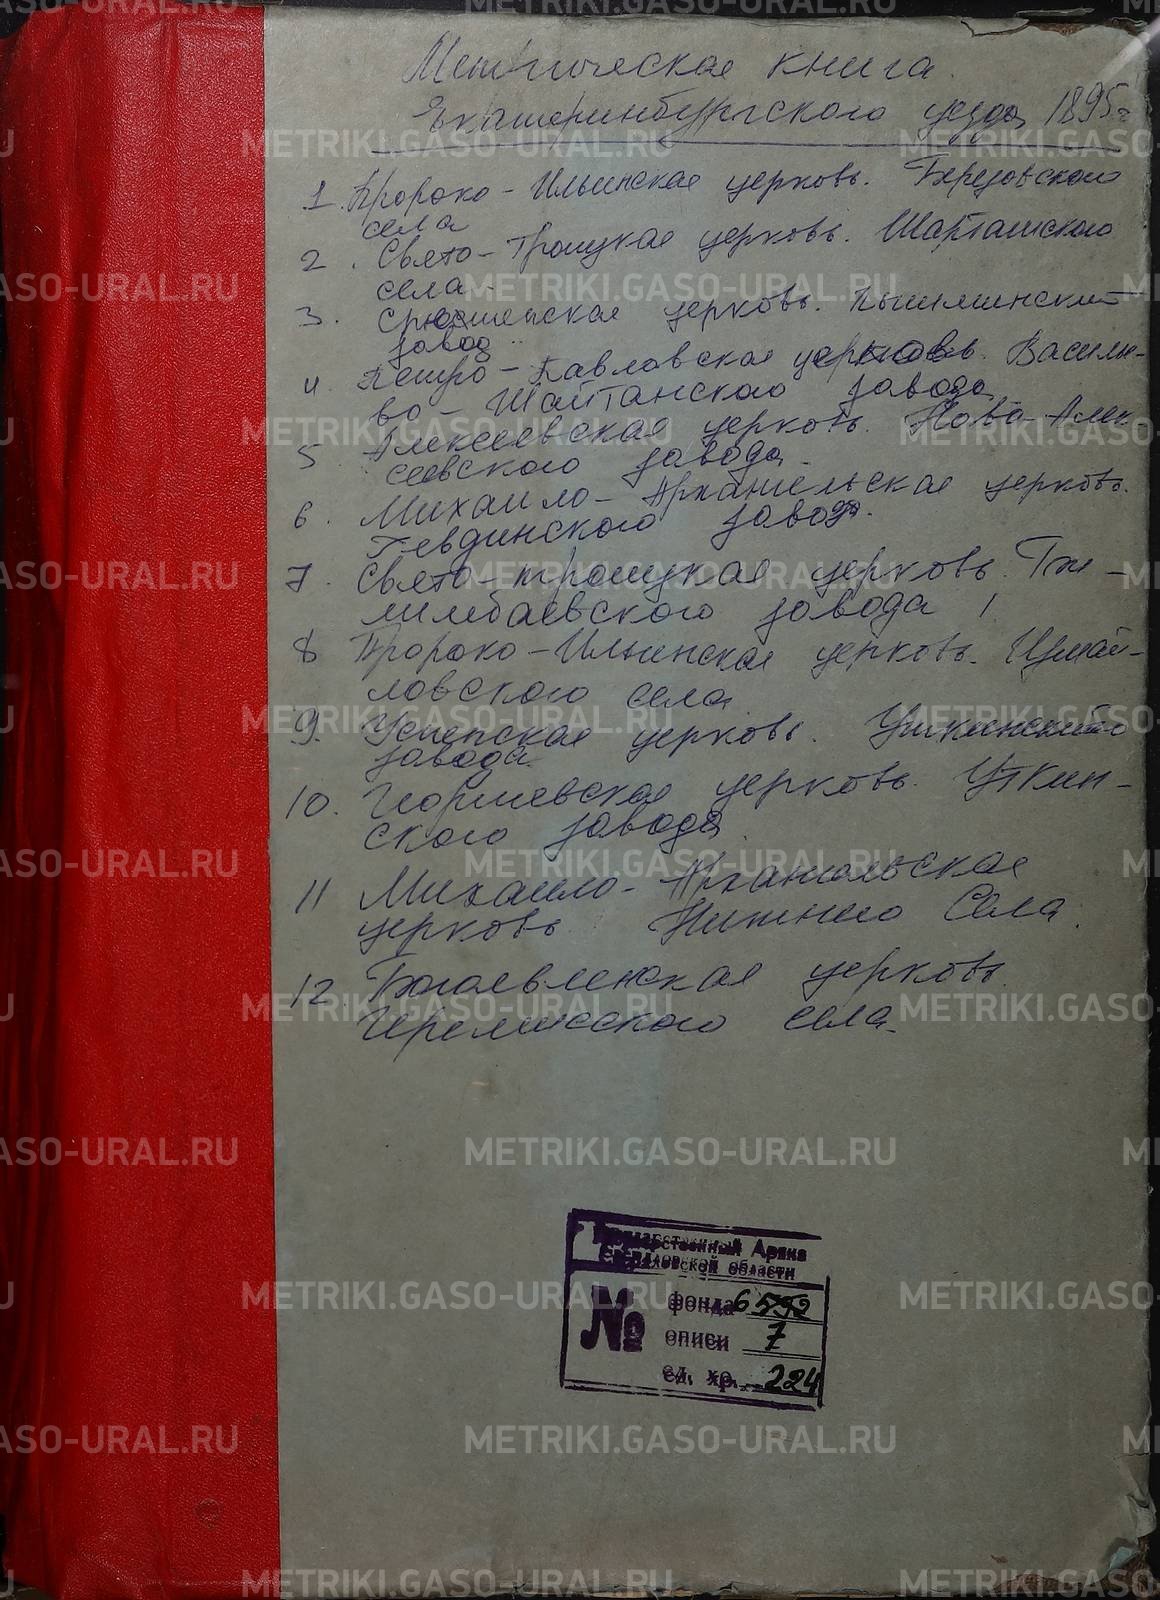 Метрическая книга
Екатеринбургского уезда 1895г
1. Пророко-Ильинская церковь. Березовского
села
2. Свято-Троицкая церковь. Шарташского
села
3. Сретенская церковь. Пышминский
завод
4. Петро-Павловская церковь. Василье-
во-Шайтанского завода
5. Алексеевская церковь. Ново-Алек-
сеевского завода
6. Михаило-Архангельская церковь.
Ревдинского завода.
7. Свято-троицкая церковь. Би-
лимбаевского завода
8 Пророко-Ильинская церковь. Измай-
ловского села
9. Успенская церковь. Уткинского
завода.
10. Георгиевская церковь. Уткин-
ского завода
11 Михаило-Архангельская
церковь Нижнего Села.
12. Богоявленская церковь.
Черемисского села.
Государственный Архив
Свердловской области
№
фонда 6592
описи 7
ед. хр. 224
METRIKI.GASO-URAL.RU